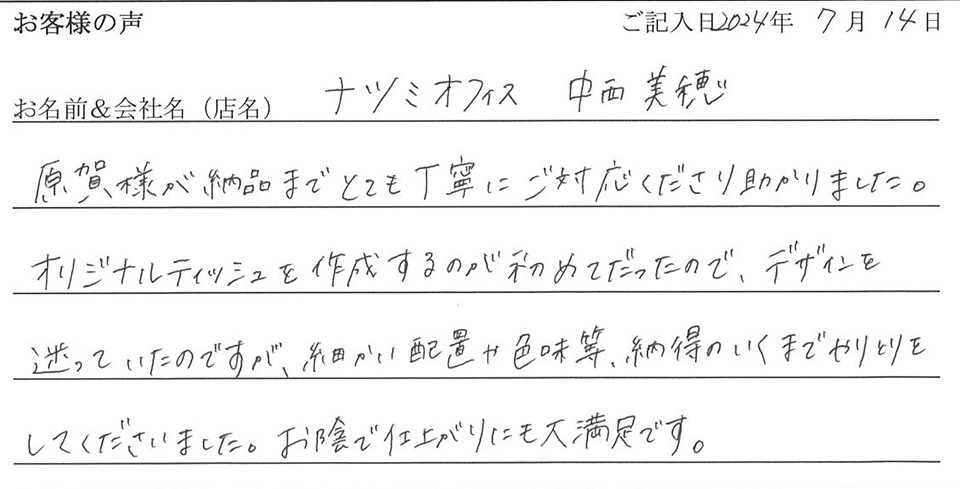 お客様の声 ご記入日2024年 7月 14日
お名前＆会社名（店名） ナツミオフィス 中西美穂
原賀様が納品までとても丁寧にご対応くださり助かりました。
オリジナルティッシュを作成するのが初めてだったので、デザインを
迷っていたのですが、細かい配置や色味等、納得のいくまでやりとりを
してくださいました。お陰で仕上がりにも大満足です。